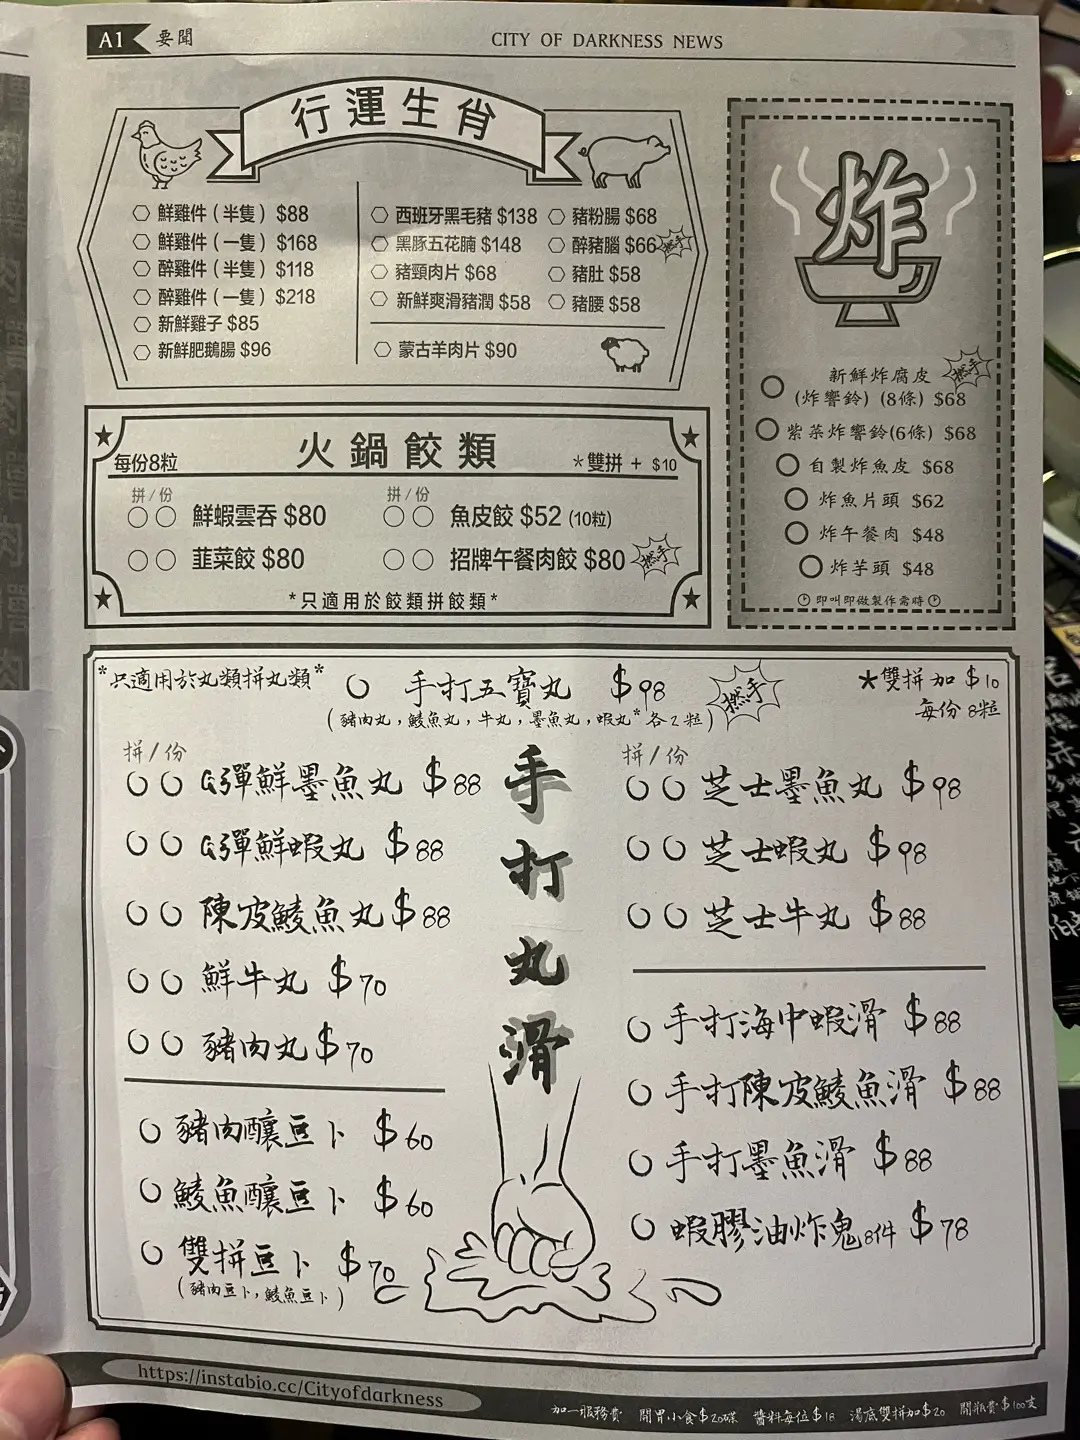 A1 要聞
CITY OF DARKNESS NEWS
行運生肖
鮮雞件(半隻) $88
鮮雞件(一隻) $168
醉雞件(半隻) $118
醉雞件(一隻) $218
新鮮雞子 $85
新鮮肥鵝腸 $96
西班牙黑毛豬 $138
黑豚五花腩 $148
豬頸肉片 $68
新鮮爽滑豬潤 $58
豬粉腸 $68
醉豬腦 $66 撚手
豬肚 $58
豬腰 $58
蒙古羊肉片 $90
炸
新鮮炸腐皮 撚手
(炸響鈴) (8條) $68
紫菜炸響鈴(6條) $68
自製炸魚皮 $68
炸魚片頭 $62
炸午餐肉 $48
炸芋頭 $48
即叫即做製作需時
每份8粒
火鍋餃類
*雙拼 + $10
拼/份
鮮蝦雲吞 $80
韮菜餃 $80
拼/份
魚皮餃 $52 (10粒)
招牌午餐肉餃 $80 撚手
*只適用於餃類拼餃類*
*只適用於丸類拼丸類*
手打五寶丸 $98 撚手
(豬肉丸,鯪魚丸,牛丸,墨魚丸,蝦丸*各2粒)
*雙拼加 $10
每份8粒
手打丸滑
拼/份
G彈鮮墨魚丸 $88
G彈鮮蝦丸 $88
陳皮鯪魚丸 $88
鮮牛丸 $70
豬肉丸 $70
豬肉釀豆卜 $60
鯪魚釀豆卜 $60
雙拼豆卜 $70
(豬肉豆卜,鯪魚豆卜)
拼/份
芝士墨魚丸 $98
芝士蝦丸 $98
芝士牛丸 $88
手打海中蝦滑 $88
手打陳皮鯪魚滑 $88
手打墨魚滑 $88
蝦膠油炸鬼8件 $78
https://instabio.cc/Cityofdarkness
加一服務費 開胃小食$20碟 醬料每位$18 湯底雙拼加$20 開瓶費$100支